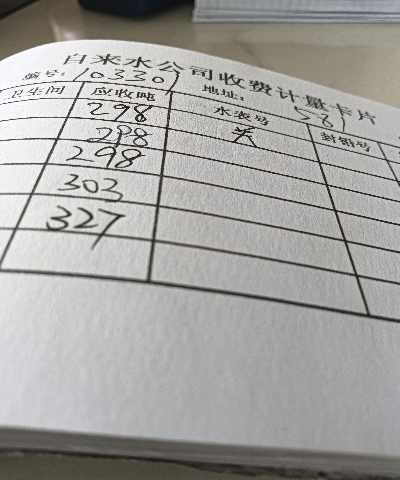 自来水公司收费计量卡片
编号: 103201 地址: 581
卫生间 应收吨 水表号 封铅号
298 关
298
298
303
327